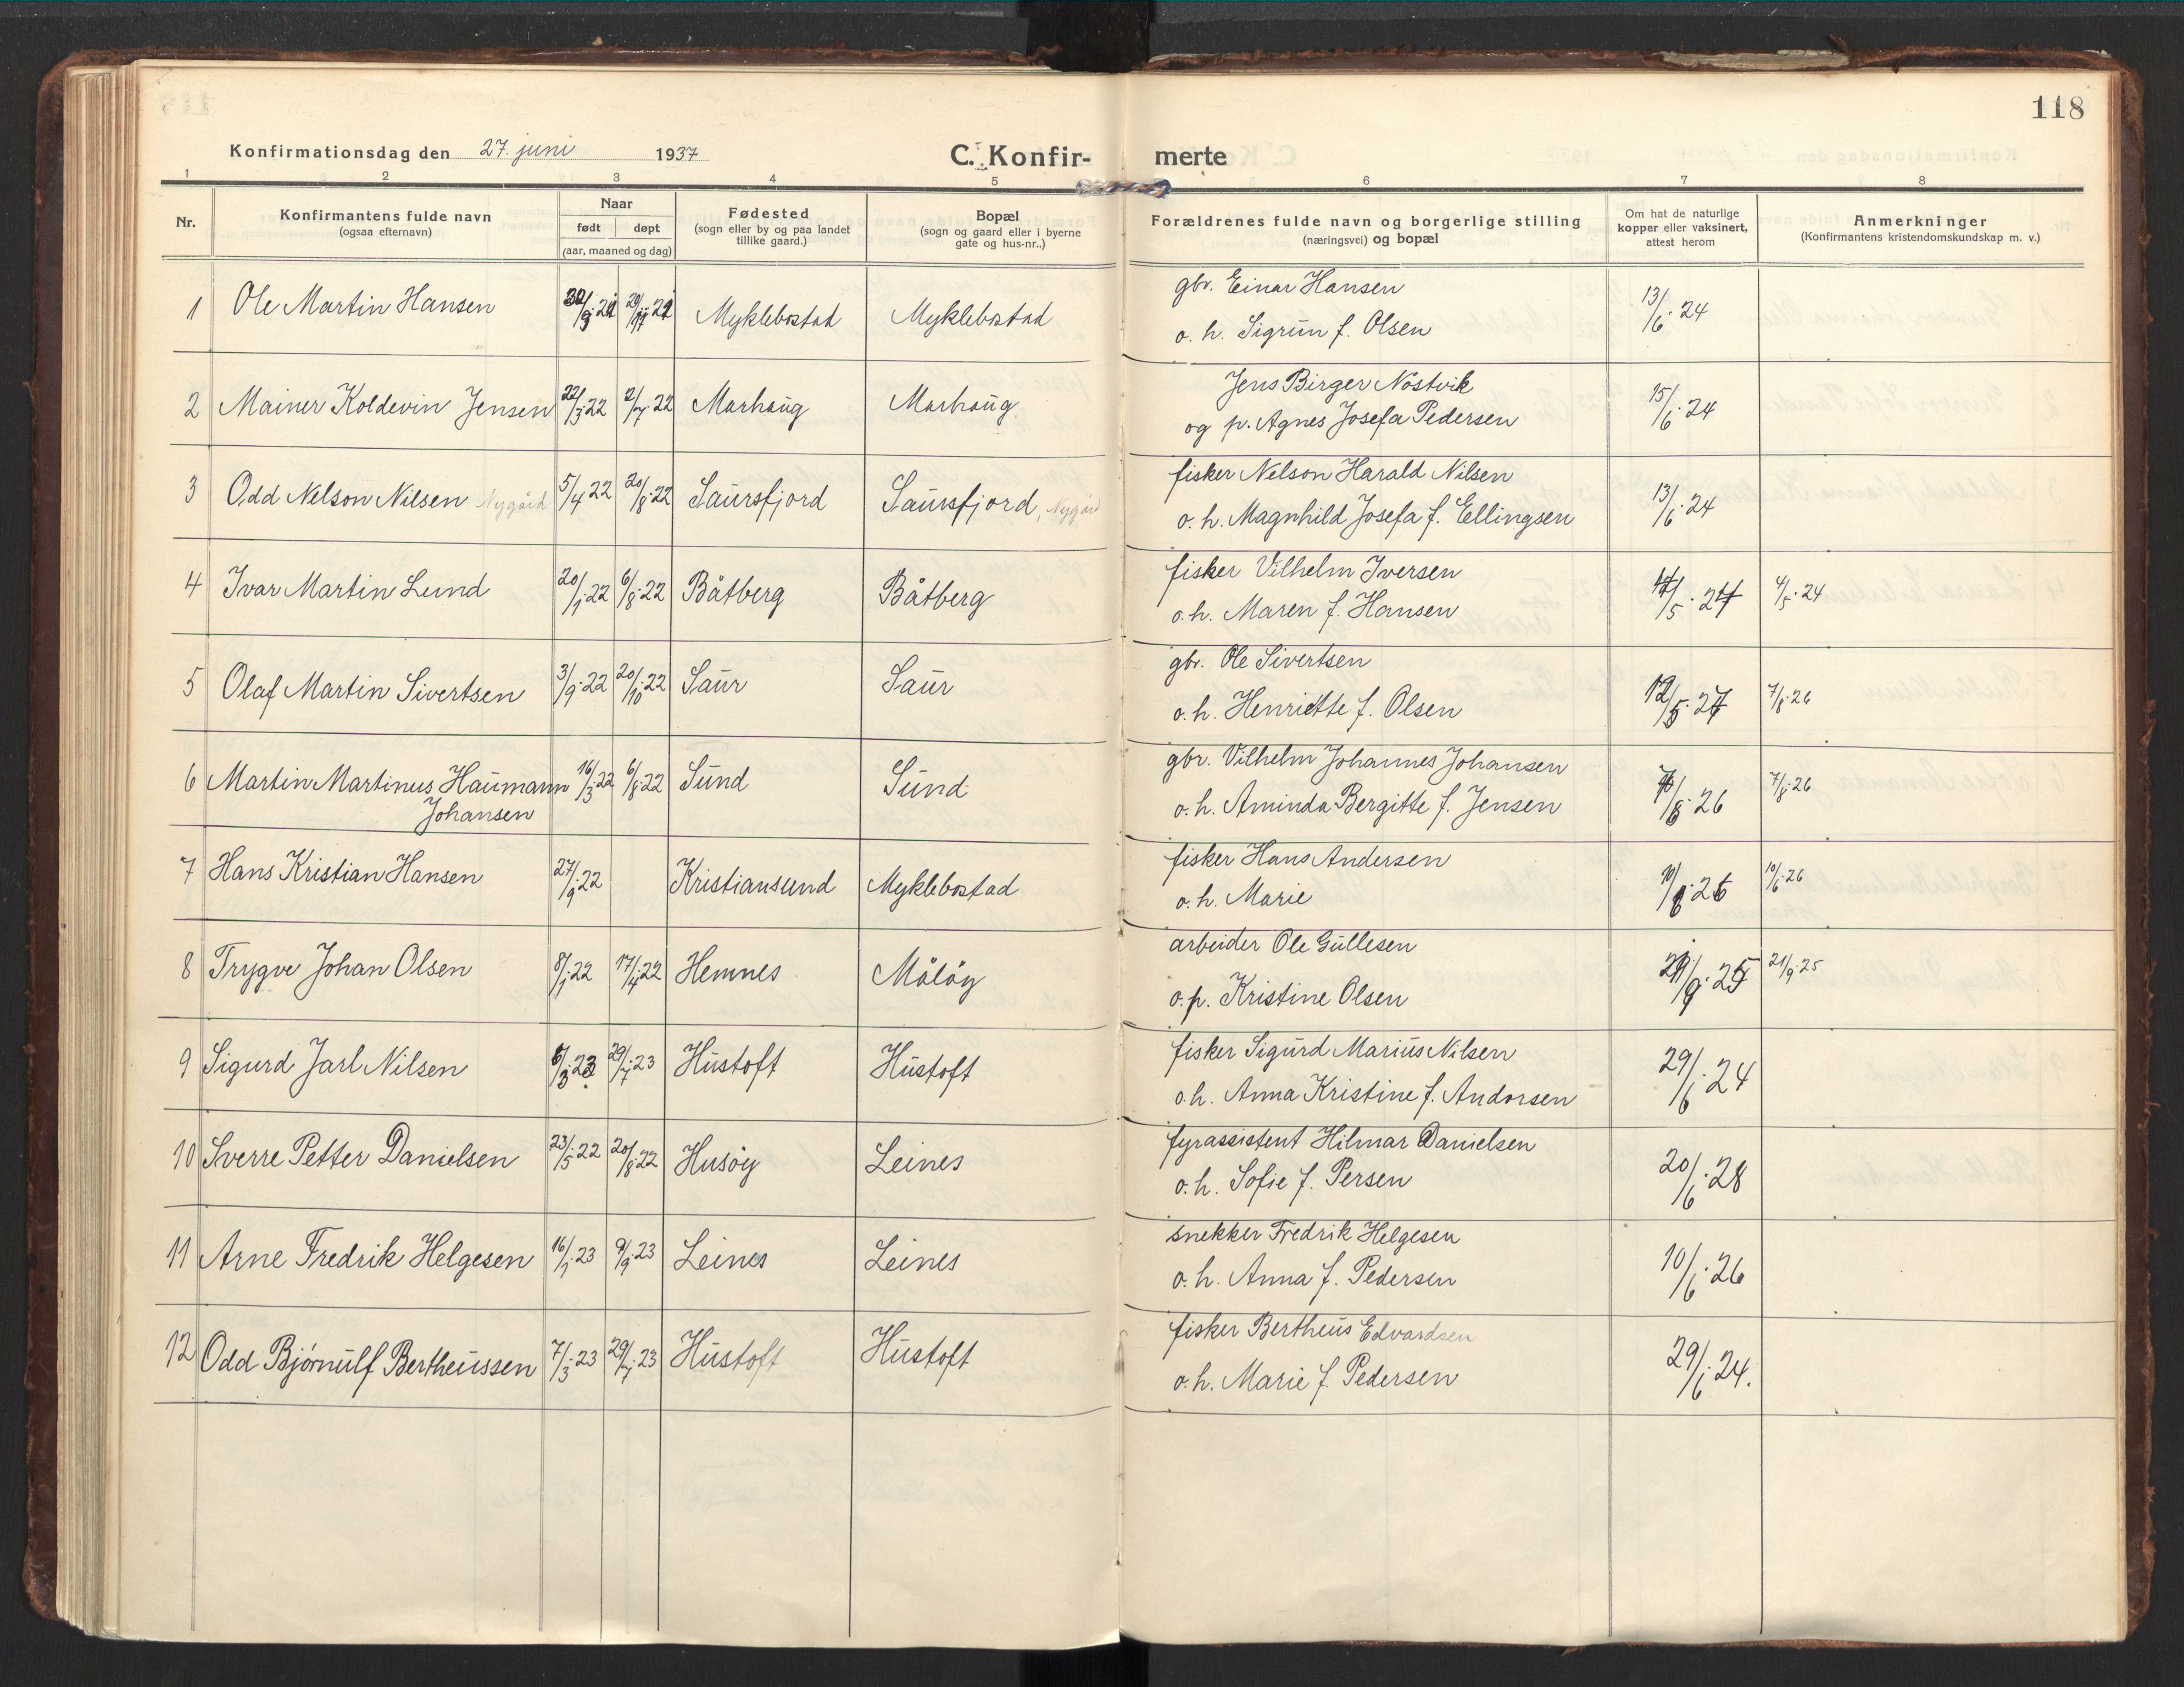 118
Konfirmationsdag den 27. juni 1937 C. Konfir- merte
1 2 3 4 5 6 7 8
Nr. Konfirmantens fulde navn (ogsaa efternavn) Naar født døpt (aar, maaned og dag) Fødested (sogn eller by og paa landet tillike gaard.) Bopæl (sogn og gaard eller i byerne gate og hus-nr..) Forældrenes fulde navn og borgerlige stilling (næringsvei) og bopæl Om hat de naturlige kopper eller vaksinert, attest herom Anmerkninger (Konfirmantens kristendomskundskap m. v.)
1 Ole Martin Hansen Myklebostad Myklebostad gbr. Einar Hansen 13/6.24
o. h. Sigrun f. Olsen
2 Mainer Koldevin Jensen 22/3.22 2/7.22 Marhaug Marhaug Jens Birger Nostvik 15/6.24
og p. Agnes Josefa Pedersen
3 Odd Nelson Nilsen Nygård 5/4 22 20/8.22 Saursfjord Saursfjord, Nygård fisker Nelson Harald Nilsen 13/6.24
o. h. Magnhild Josefa f. Ellingsen
4 Ivar Martin Lund 20/1.22 6/8.22 Båtberg Båtberg fisker Vilhelm Iversen 4/5.24
o. h. Maren f. Hansen
5 Olaf Martin Sivertsen 3/9.22 20/10.22 Saur Saur gbr. Ole Sivertsen 7/8.26
o. h. Henriette f. Olsen
6 Martin Martinus Haumann 16/3.22 6/8.22 Sund Sund gbr. Vilhelm Johannes Johansen 7/8.26
Johansen o. h. Aminda Bergitte f. Jensen
7 Hans Kristian Hansen 27/9.22 Kristiansund Myklebostad fisker Hans Andersen 10/6.26
o. h. Marie
8 Trygve Johan Olsen 8/1.22 17/4.22 Hemnes Måløy arbeider Ole Gullesen 21/9.25
o. p. Kristine Olsen
9 Sigurd Jarl Nilsen 6/3.23 29/7.23 Hustoft Hustoft fisker Sigurd Marius Nilsen 29/6.24
o. h. Anna Kristine f. Andorsen
10 Sverre Petter Danielsen 23/5.22 20/8.22 Husøy Leines fyrassistent Hilmar Danielsen 20/6.28
o. h. Sofie f. Persen
11 Arne Fredrik Helgesen 16/1.23 9/9.23 Leines Leines snekker Fredrik Helgesen 10/6.26
o. h. Anna f. Pedersen
12 Odd Bjørnulf Bertheussen 7/3.23 29/7.23 Hustoft Hustoft fisker Bertheus Edvardsen 29/6.24.
o. h. Marie f. Pedersen